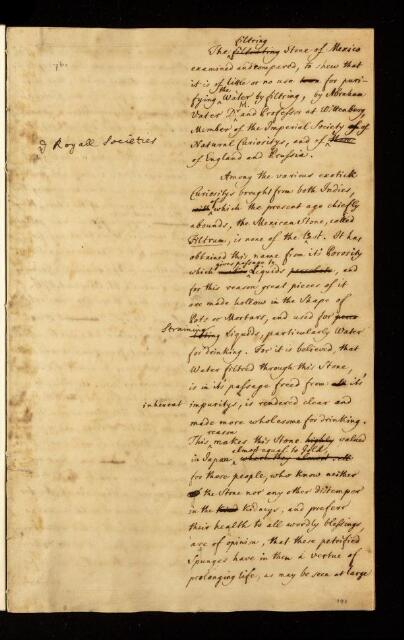 filtring
The filtrating Stone of Mexico
examined and compared, to shew that
it is of little or no use for puri-
the
fying Water by filtring, by Abraham
M.
Vater D. and Professor at Wittenburg,
Member of the Imperial Society of
Natural Curiositys, and of
the Royall Societies
of England and Prussia.
Among the various exotick
Curiositys brought from both Indies,
with of which the present age chiefly
abounds, the Mexican Stone, called
Filtrum, is none of the last. It has
obtained this name from its Porosity
gives passage to
which Liquids, and
for this reason great pieces of it
are made hollow in the shape of
Pots or Mortars, and used for
Straining
filtring Liquids, particularly Water
for drinking. For it is believed, that
Water filtred through this Stone,
is in its passage freed from all its
inherent impuritys, is rendered clear and
made more wholesome for drinking.
reason
This makes this Stone highly valued
almost equal to Gold,
in Japan,
for those people, who know neither
the Stone nor any other distemper
in the Kidneys, and preferr
their health to all wordly blessings,
are of opinion, that these petrified
Spunges have in them a vertue of
prolonging life, as may be seen at large